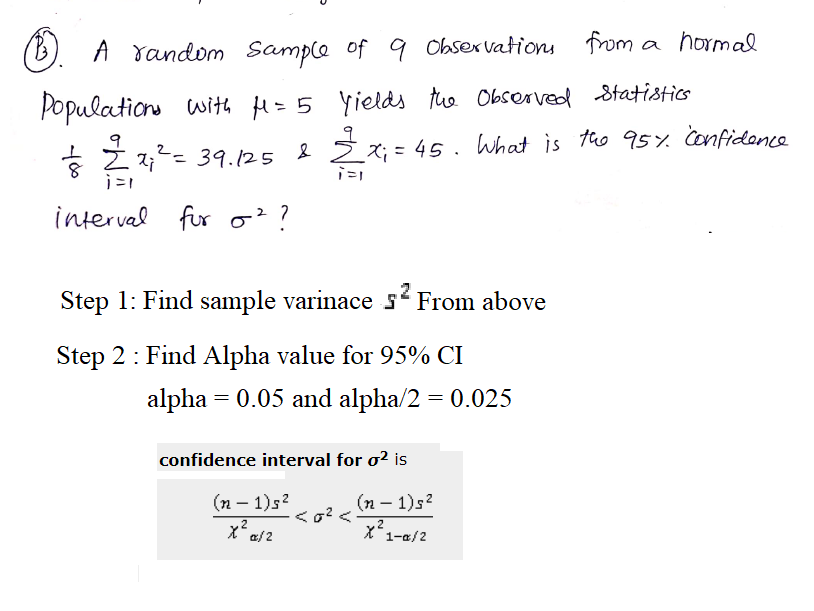 B. A random sample of 9 observations from a normal
Populations with μ = 5 yields the observed statistics
1/8 ∑_{i=1}^{9} x_i² = 39.125 & ∑_{i=1}^{9} x_i = 45. What is the 95% confidence
interval for σ² ?
Step 1: Find sample varinace s² From above
Step 2 : Find Alpha value for 95% CI
alpha = 0.05 and alpha/2 = 0.025
confidence interval for σ² is
(n − 1)s² / χ²_{α/2} < σ² < (n − 1)s² / χ²_{1−α/2}